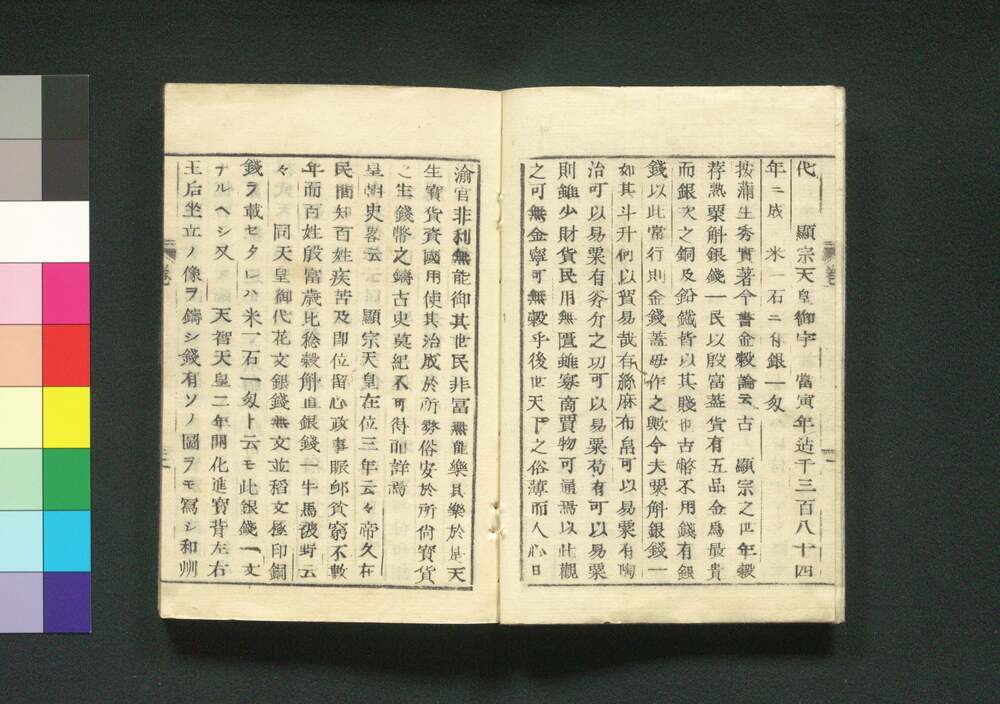 代　顯宗天皇御宇　當寅年迠千三百八十四
年ニ成　米一石ニ付銀一匁
按蒲生秀實著今書金穀論云古　顯宗之四年穀
荐熟粟斛銀錢一民以殷富蓋貨有五品金爲最貴
而銀次之銅及鉛鐵皆以其賤也古幣不用錢有銀
錢以此常行則金錢蓋毋作之歟今夫粟斛銀錢一
如其斗升何以貿易哉存絲麻布帛可以易粟有陶
治可以易粟有 分之功可以易粟苟有可以易粟
則雖少財貨民用無匱雖寡商賈物可通焉以此觀
之可無金寧可無穀乎後世天下之俗薄而人心日
渝官非利無能御其世民非冨無能樂其樂於是天
生寶貨資國用使其治成於所勢俗安於所尙寶貨
之生錢幣之鑄古史莫紀不可得而詳焉
皇朝史畧云　顯宗天皇在位三年云々帝久在
民間知百姓疾苦及即位畱心政事賑邮貧窮不數
年而百姓殷富歳比稔穀斛直銀錢一牛馬波野云
々　同天皇御代花文銀錢無文並稻文極印銅
錢ヲ載セタレハ米一石一匁ト云モ此銀錢一文
ナルヘシ又　天智天皇二年開化進寶背左右
王后坐立ノ像ヲ鑄シ錢有ソノ圖ヲモ寫シ和州